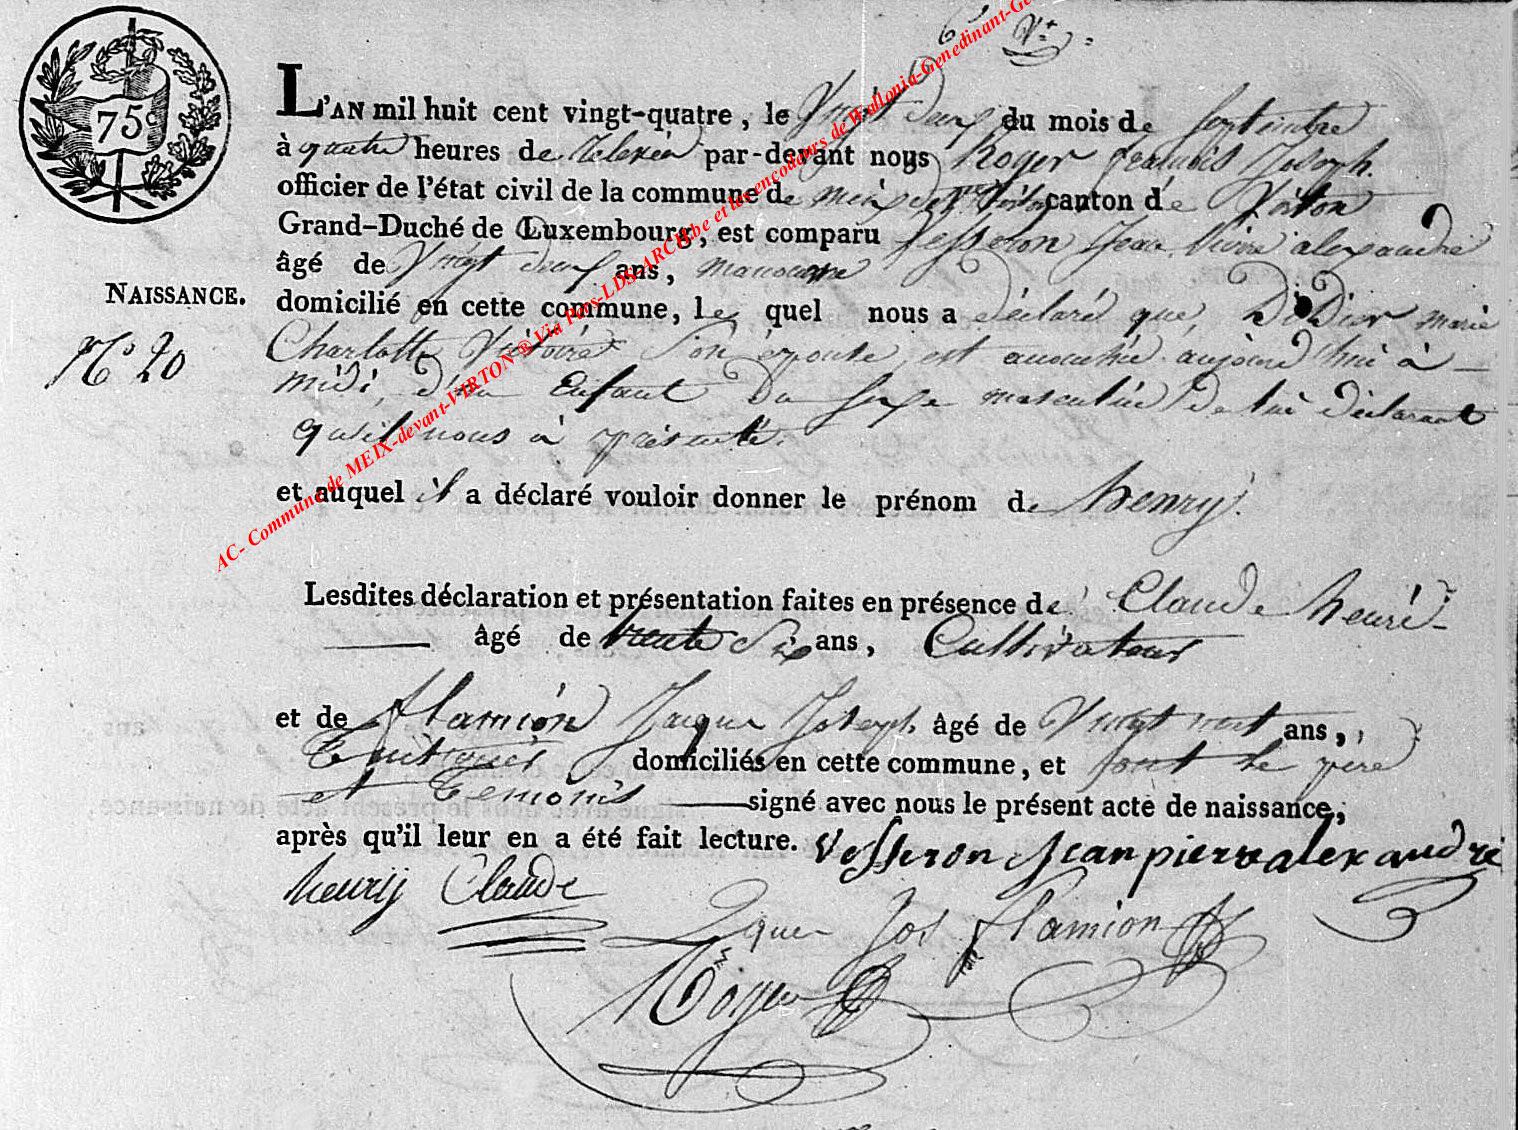 6 Vt
75c
L'AN mil huit cent vingt-quatre, le Vingt deux du mois de septembre
à quatre heures de relevée par-devant nous Roger francois Joseph
officier de l'état civil de la commune de meix devt Virton canton de Virton
Grand-Duché de Luxembourg, est comparu Vesseron Jean Pierre alexandre
âgé de Vingt deux ans, manouvre
NAISSANCE.
domicilié en cette commune, le quel nous a déclaré que, Didier marie
N° 20
Charlotte Victoire son épouse, est accouchée aujourd'hui à
midi, d'un Enfant Du sexe masculin De lui déclarant
qu'il nous à présenté.
et auquel il a déclaré vouloir donner le prénom de henry.
Lesdites déclaration et présentation faites en présence de Claude henri
âgé de trente Six ans, Cultivateur
et de flamion Jacques Joseph âgé de Vingt ans,
domiciliés en cette commune, et sont le pere
et temoins signé avec nous le présent acte de naissance,
après qu'il leur en a été fait lecture. Vesseron jean pierre alexandre
henry Claude
Jques Jos flamion
Roger
AC- Commune de MEIX-devant-VIRTON ® Via Pros-LDS-ARCH.be et les encodeurs de Wallonia-Genedinant-Ge